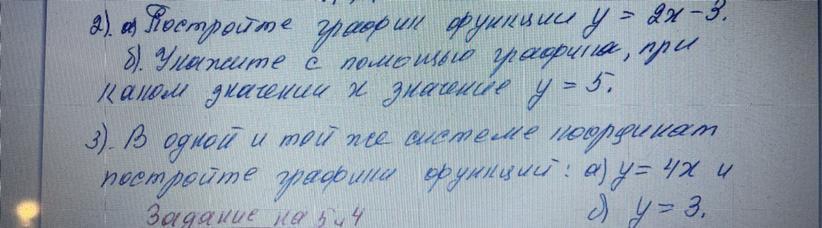 2). а) Постройте график функции y = 2x - 3.
б). Укажите с помощью графика, при
каком значении x значение y = 5.
3). В одной и той же системе координат
постройте графики функций: а) y = 4x и
б) y = 3.
Задание на 5 и 4